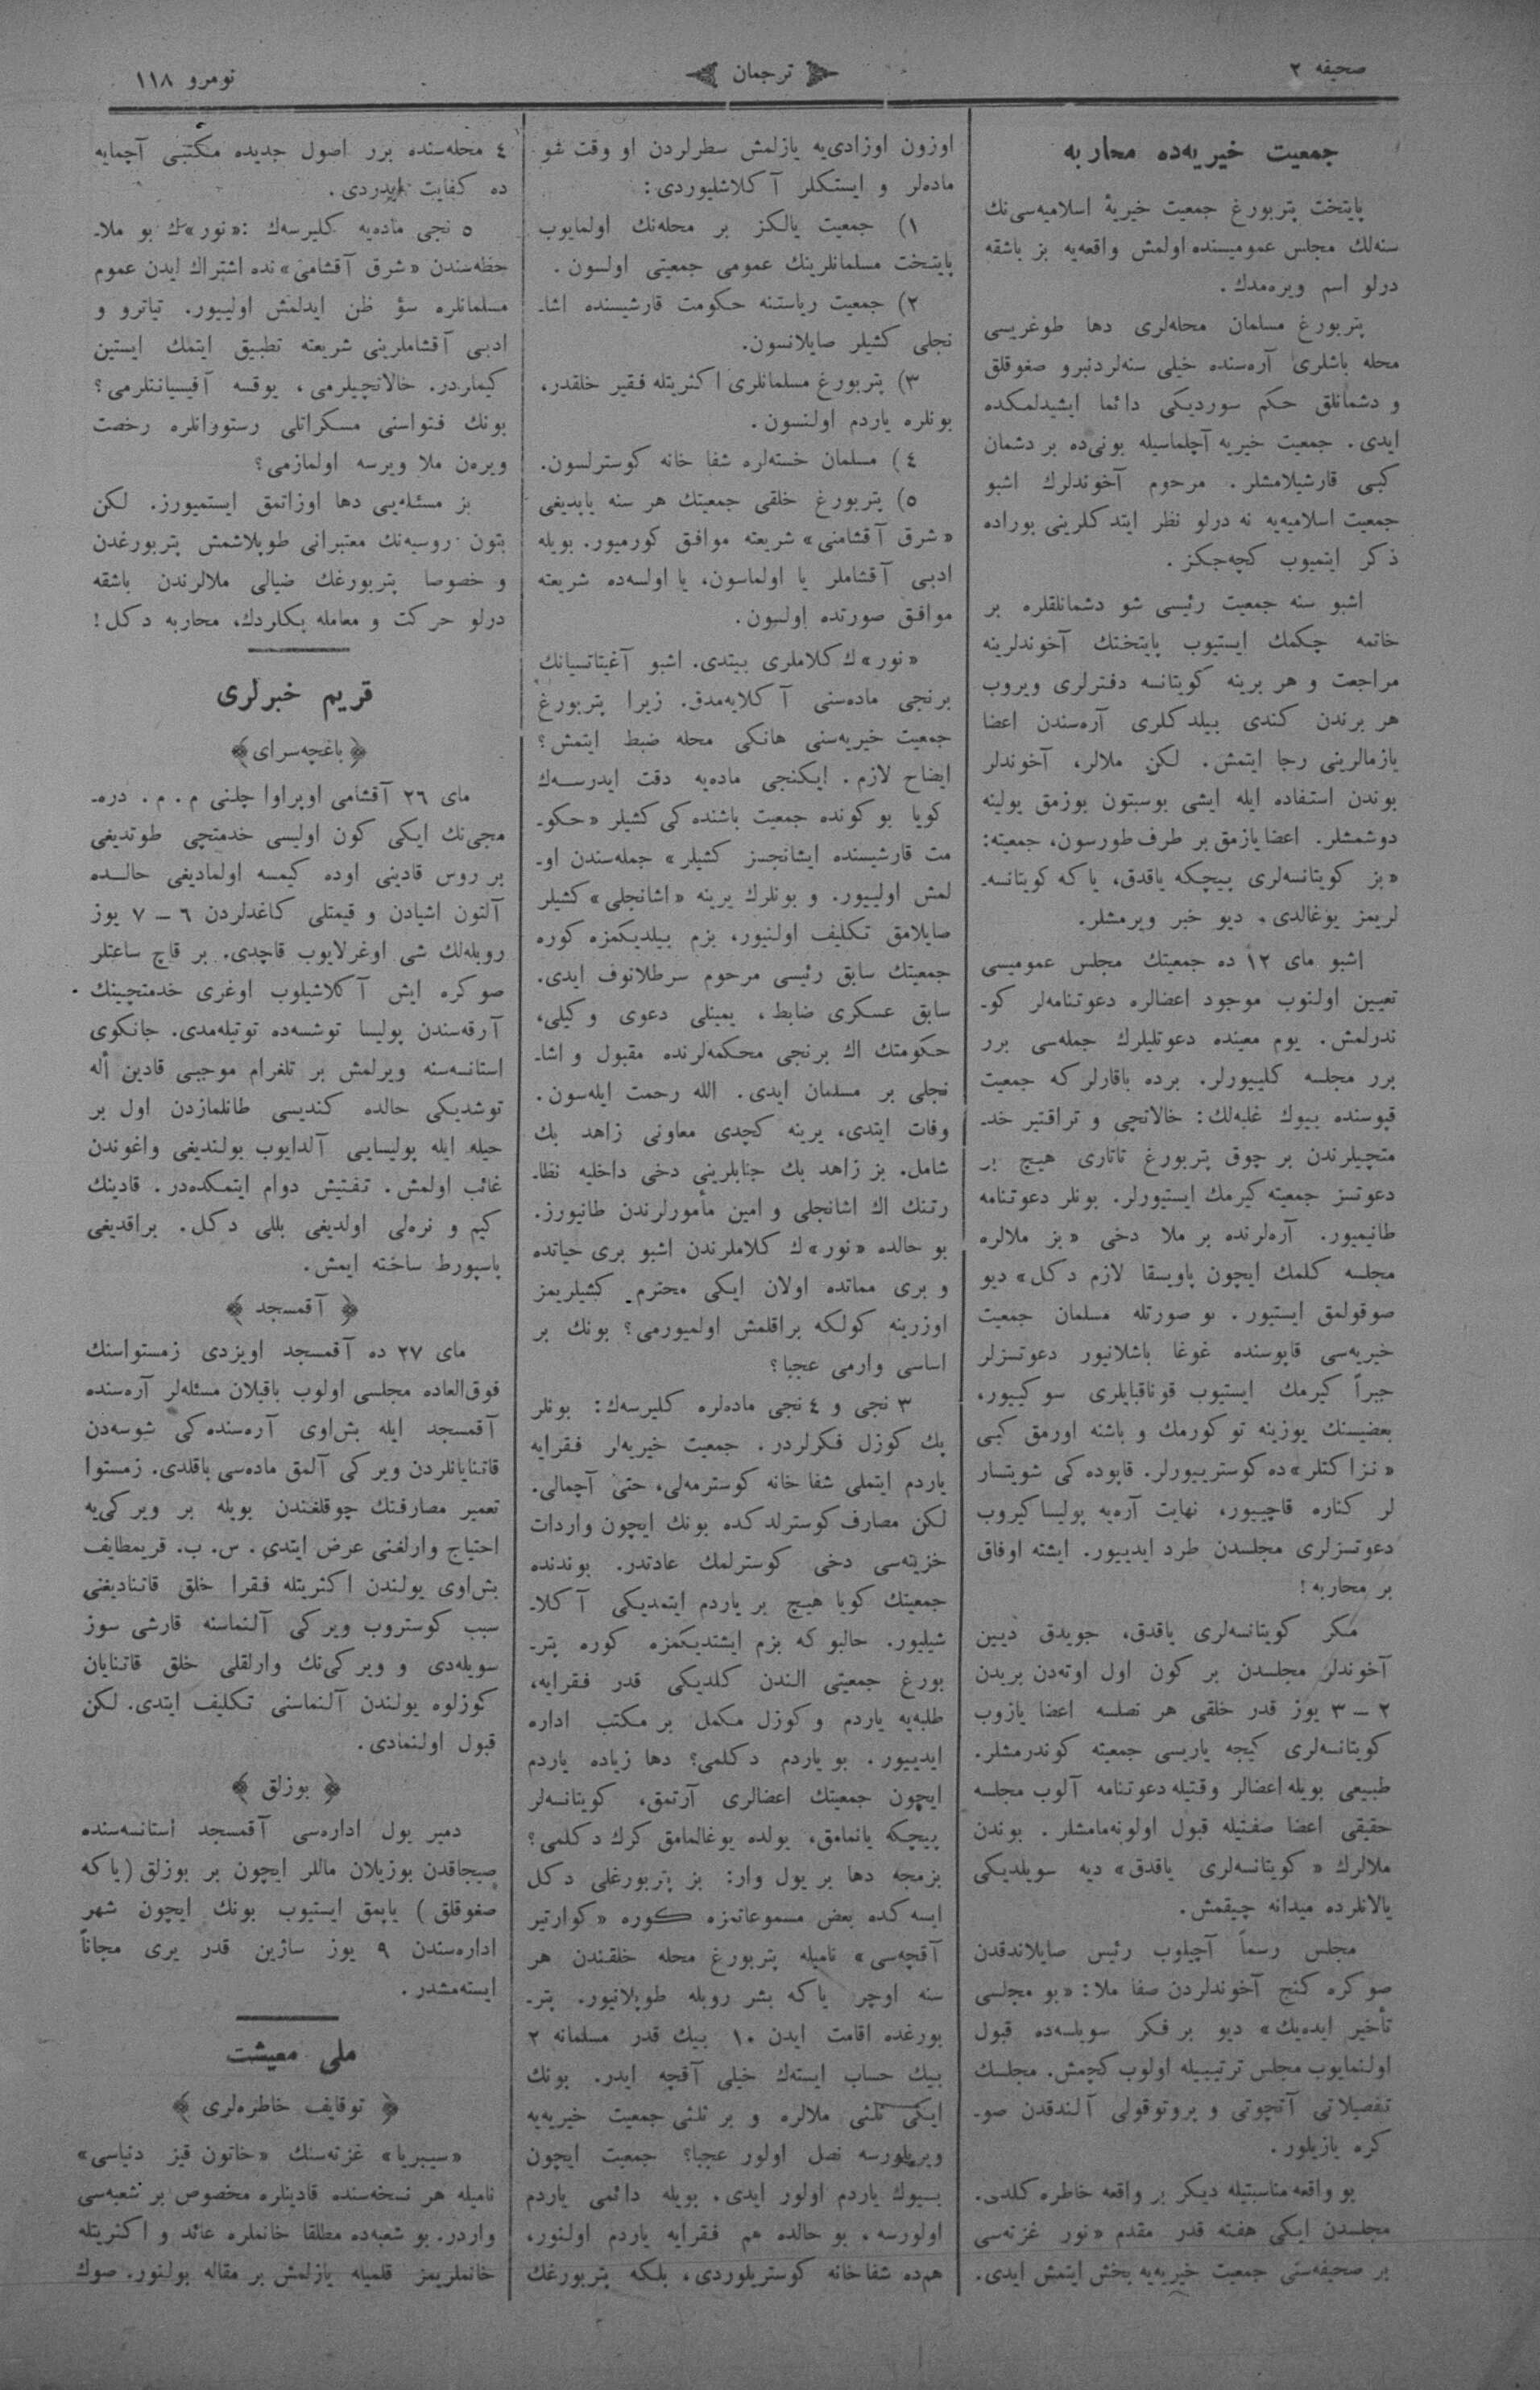 صحیفه ٢
ترجمان
نومرو ١١٨
جمعیت خیریه‌ده محاربه
پایتخت پتربورغ جمعیت خیریۀ اسلامیه‌سی‌نك
سنه‌لك مجلس عمومیسنده اولمش واقعه‌یه بز باشقه
درلو اسم ویره‌مدك.
پتربورغ مسلمان محله‌لری دها طوغریسی
محله باشلری آره‌سنده خیلی سنه‌لردنبرو صغوقلق
و دشمانلق حكم سوردیكی دائما ایشیدلمكده
ایدی. جمعیت خیریه آچلماسیله بونی‌ده بر دشمان
كبی قارشیلامشلر. مرحوم آخوندلرك اشبو
جمعیت اسلامیه‌یه نه درلو نظر ایتدكلرینی بوراده
ذكر ایتمیوب كچه‌جكز.
اشبو سنه جمعیت رئیسی شو دشمانلقلره بر
خاتمه چكمك ایستیوب پایتختك آخوندلرینه
مراجعت و هر برینه كویتانسه دفترلری ویروب
هر برندن كندی بیلدكلری آره‌سندن اعضا
یازمالرینی رجا ایتمش. لكن ملالر، آخوندلر
بوندن استفاده ایله ایشی بوسبتون بوزمق یولینه
دوشمشلر. اعضا یازمق بر طرف طورسون، جمعیته:
«بز كویتانسه‌لری پیچكه یاقدق، یا كه كویتانسه‌ـ
لریمز یوغالدی. دیو خبر ویرمشلر.
اشبو مای ١٢ ده جمعیتك مجلس عمومیسی
تعیین اولنوب موجود اعضالره دعوتنامه‌لر كو‌ـ
ندرلمش. یوم معینده دعوتلیلرك جمله‌سی برر
برر مجلسه كلییورلر. برده باقارلر كه جمعیت
قپوسنده بیوك غلبه‌لك: خالاتچی و تراقتیر خد‌ـ
متچیلرندن بر چوق پتربورغ تاتاری هیچ بر
دعوتسز جمعیته كیرمك ایستیورلر. بونلر دعوتنامه
طانیمیور. آره‌لرنده بر ملا دخی «بز ملالره
مجلسه كلمك ایچون پاویسقا لازم دكل» دیو
صوقولمق ایستیور. بو صورتله مسلمان جمعیت
خیریه‌سی قاپوسنده غوغا باشلانیور دعوتسزلر
جبراً كیرمك ایستیوب قوناقبایلری سوكییور،
بعضیسنك یوزینه توكورمك و باشنه اورمق كبی
«نزاكتلر» ده كوسترییورلر. قاپوده كی شویتسار
لر كناره قاچییور، نهایت آره‌یه پولیسا كیروب
دعوتسزلری مجلسدن طرد ایدییور. ایشته اوفاق
بر محاربه!
مكر كویتانسه‌لری یاقدق، جویدق دیین
آخوندلر مجلسدن بر كون اول اوته‌دن بریدن
٢ – ٣ یوز قدر خلقی هر نصلسه اعضا یازوب
كویتانسه‌لری كیجه یاریسی جمعیته كوندرمشلر.
طبیعی بویله اعضالر وقتیله دعوتنامه آلوب مجلسه
حقیقی اعضا صفتیله قبول اولونه‌مامشلر. بوندن
ملالرك «كویتانسه‌لری یاقدق» دیه سویلدیكی
یالانلرده میدانه چیقمش.
مجلس رسماً آچیلوب رئیس صایلاندقدن
صوكره كنج آخوندلردن صفا ملا: «بو مجلسی
تأخیر ایده‌یك» دیو بر فكر سویلسه‌ده قبول
اولنمایوب مجلس ترتیبیله اولوب كچمش. مجلسك
تفصیلاتی آتچوتی و پروتوقولی آلندقدن صو‌ـ
كره یازیلور.
بو واقعه مناسبتیله دیكر بر واقعه خاطره كلدی.
مجلسدن ایكی هفته قدر مقدم «نور غزته‌سی
بر صحیفه‌سنی جمعیت خیریه‌یه بخش ایتمش ایدی.
اوزون اوزادی‌یه یازلمش سطرلردن او وقت شو
ماده‌لر و ایستكلر آكلاشلیوردی:
١) جمعیت یالكز بر محله‌نك اولمایوب
پایتخت مسلمانلرینك عمومی جمعیتی اولسون.
٢) جمعیت ریاستنه حكومت قارشیسنده اشا‌ـ
نجلی كشیلر صایلانسون.
٣) پتربورغ مسلمانلری اكثریتله فقیر خلقدر،
بونلره یاردم اولنسون.
٤) مسلمان خسته‌لره شفا خانه كوسترلسون.
٥) پتربورغ خلقی جمعیتك هر سنه یاپدیغی
«شرق آقشامنی» شریعته موافق كورمیور. بویله
ادبی آقشاملر یا اولماسون، یا اولسه‌ده شریعته
موافق صورتده اولسون.
«نور»ك كلاملری بیتدی. اشبو آغیتاتسیانك
برنجی ماده‌سنی آكلایه‌مدق. زیرا پتربورغ
جمعیت خیریه‌سنی هانكی محله ضبط ایتمش؟
ایضاح لازم. ایكنجی ماده‌یه دقت ایدرسه‌ك
كویا بو كونده جمعیت باشنده كی كشیلر «حكو‌ـ
مت قارشیسنده ایشانجسز كشیلر» جمله‌سندن او‌ـ
لمش اولییور. و بونلرك یرینه «اشانجلی» كشیلر
صایلامق تكلیف اولنیور، بزم بیلدیكمزه كوره
جمعیتك سابق رئیسی مرحوم سرطلانوف ایدی.
سابق عسكری ضابط، یمینلی دعوی وكیلی،
حكومتك اك برنجی محكمه‌لرنده مقبول و اشا‌ـ
نجلی بر مسلمان ایدی. الله رحمت ایله‌سون.
وفات ایتدی، یرینه كچدی معاونی زاهد بك
شامل. بز زاهد بك جنابلرینی دخی داخلیه نظا‌ـ
رتنك اك اشانجلی و امین مأمورلرندن طانیورز.
بو حالده «نور»ك كلاملرندن اشبو بری حیاتده
و بری مماتده اولان ایكی محترم كشیلریمز
اوزرینه كولكه براقلمش اولمیورمی؟ بونك بر
اساسی وارمی عجبا؟
٣ نجی و ٤ نجی ماده‌لره كلیرسه‌ك: بونلر
پك كوزل فكرلردر. جمعیت خیریه‌لر فقرایه
یاردم ایتملی شفا خانه كوسترمه‌لی، حتی آچمالی.
لكن مصارف كوسترلدكده بونك ایچون واردات
خزینه‌سی دخی كوسترلمك عادتدر. بوندنده
جمعیتك كویا هیچ بر یاردم ایتمدیكی آكلا‌ـ
شیلیور. حالبو كه بزم ایشتدیكمزه كوره پتر‌ـ
بورغ جمعیتی الندن كلدیكی قدر فقرایه،
طلبه‌یه یاردم و كوزل مكمل بر مكتب اداره
ایدییور. بو یاردم دكلمی؟ دها زیاده یاردم
ایچون جمعیتك اعضالری آرتمق، كویتانسه‌لر
پیچكه یانمامق، یولده یوغالمامق كرك دكلمی؟
بزمجه دها بر یول وار: بز پتربورغلی دكل
ایسه كده بعض مسموعاتمزه كوره «كوارتیر
آقچه‌سی» نامیله پتربورغ محله خلقندن هر
سنه اوچر یا كه بشر روبله طوپلانیور. پتر‌ـ
بورغده اقامت ایدن ١٠ بیك قدر مسلمانه ٢
بیك حساب ایسته‌ك خیلی آقچه ایدر. بونك
ایكی ثلثی ملالره و بر ثلثی جمعیت خیریه‌یه
ویریلورسه نصل اولور عجبا؟ جمعیت ایچون
بیوك یاردم اولور ایدی. بویله دائمی یاردم
اولورسه، بو حالده هم فقرایه یاردم اولنور،
هم‌ده شفا خانه كوستریلوردی، بلكه پتربورغك
٤ محله‌سنده برر اصول جدیده مكتبی آچمایه
ده كفایت ایدردی.
٥ نجی ماده‌یه كلیرسه‌ك: «نور»ك بو ملا‌ـ
حظه‌سندن «شرق آقشامی»نده اشتراك ایدن عموم
مسلمانلره سؤ ظن ایدلمش اولییور. تیاترو و
ادبی آقشاملرینی شریعته تطبیق ایتمك ایستین
كیملردر. خالاتچیلرمی، یوقسه آفیسیانتلرمی؟
بونك فتواسنی مسكراتلی رستورانلره رخصت
ویره‌ن ملا ویرسه اولمازمی؟
بز مسئله‌یی دها اوزاتمق ایستمیورز. لكن
بتون روسیه‌نك معتبرانی طوپلاشمش پتربورغدن
و خصوصا پتربورغك ضیالی ملالرندن باشقه
درلو حركت و معامله بكلردك، محاربه دكل!
قریم خبرلری
﴿باغچه‌سرای﴾
مای ٢٦ آقشامی اوپراوا چلنی م. م. دره‌ـ
مجی‌نك ایكی كون اولیسی خدمتچی طوتدیغی
بر روس قادینی اوده كیمسه اولمادیغی حالده
آلتون اشیادن و قیمتلی كاغدلردن ٦ – ٧ یوز
روبله‌لك شی اوغرلایوب قاچدی. بر قاچ ساعتلر
صوكره ایش آكلاشیلوب اوغری خدمتچینك
آرقه‌سندن پولیسا توشسه‌ده توتیله‌مدی. جانكوی
استانسه‌سنه ویرلمش بر تلغرام موجبی قادین أله
توشدیكی حالده كندیسی طانلمازدن اول بر
حیله ایله پولیسایی آلدایوب بولندیغی واغوندن
غائب اولمش. تفتیش دوام ایتمكده‌در. قادینك
كیم و نره‌لی اولدیغی بللی دكل. براقدیغی
پاسپورط ساخته ایمش.
﴿آقمسجد﴾
مای ٢٧ ده آقمسجد اویزدی زمستواسنك
فوق‌العاده مجلسی اولوب باقیلان مسئله‌لر آره‌سنده
آقمسجد ایله بش‌اوی آره‌سنده كی شوسه‌دن
قاتنایانلردن ویركی آلمق ماده‌سی باقلدی. زمستوا
تعمیر مصارفتك چوقلغندن بویله بر ویركی‌یه
احتیاج وارلغنی عرض ایتدی. س. ب. قریمطایف
بش‌اوی یولندن اكثریتله فقرا خلق قاتنادیغنی
سبب كوستروب ویركی آلنماسنه قارشی سوز
سویله‌دی و ویركی‌نك وارلقلی خلق قاتنایان
كوزلوه یولندن آلنماسنی تكلیف ایتدی. لكن
قبول اولنمادی.
﴿بوزلق﴾
دمیر یول اداره‌سی آقمسجد استانسه‌سنده
صیجاقدن بوزیلان ماللر ایچون بر بوزلق (یا كه
صغوقلق) یاپمق ایستیوب بونك ایچون شهر
اداره‌سندن ٩ یوز ساژین قدر یری مجاناً
ایسته‌مشدر.
ملی معیشت
﴿توقایف خاطره‌لری﴾
«سیبریا» غزته‌سنك «خاتون قیز دنیاسی»
نامیله هر نسخه‌سنده قادینلره مخصوص بر شعبه‌سی
واردر. بو شعبه‌ده مطلقا خانملره عائد و اكثریتله
خانملریمز قلمیله یازلمش بر مقاله بولنور. صوك